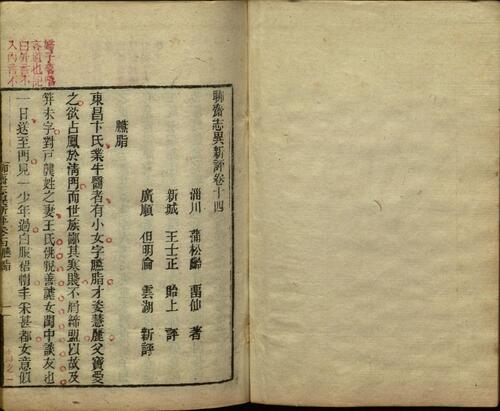 聊齋志異新評卷十四
淄川 蒲松齡 留仙 著
新城 王士正 貽上 評
廣順 但明倫 雲湖 新評
臙脂
東昌卞氏業牛醫者有小女字臙脂才姿慧麗父寶愛
之欲占鳳於清門而世族鄙其寒賤不屑締盟以故及
笄未字對戸龔姓之妻王氏佻脫善謔女閨中談友也
一日送至門見一少年過白服裙帽丰采甚都女意似